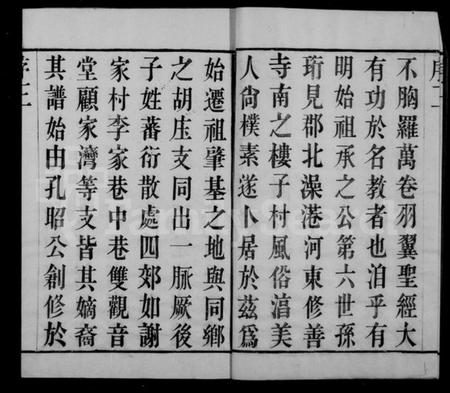 序二
不胸羅萬卷羽翼聖經大
有功於名教者也洎乎有
明始祖承之公第六世孫
珩見郡北澡港河東修善
寺南之樓子村風俗湻美
人尙樸素遂卜居於茲爲
始遷祖肇基之地與同鄉
之胡庄支同出一脈厥後
子姓蕃衍散處四郊如謝
家村李家巷中巷雙觀音
堂顧家灣等支皆其嫡裔
其譜始由孔昭公創修於
序三